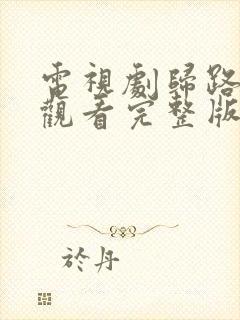 電視劇歸路
觀看完整版
於丹